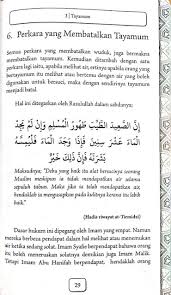 3 | Tayamum
6. Perkara yang Membatalkan Tayamum
Semua perkara yang membatalkan wuduk, juga bermakna
membatalkan tayamum. Kemudian ditambah dengan satu
perkara lagi iaitu, apabila melihat air, ertinya apabila orang yang
bertayamum itu melihat atau bertemu dengan air yang boleh
digunakan untuk bersuci, maka dengan sendirinya tayamumnya
menjadi batal.
Hal ini ditegaskan oleh Rasulullah dalam sabdanya:
إِنَّ الصَّعِيدَ الطَّيِّبَ طَهُورُ الْمُسْلِمِ وَإِنْ لَمْ يَجِدِ
الْمَاءَ عَشْرَ سِنِينَ فَإِذَا وَجَدَ الْمَاءَ فَلْيُمِسَّهُ
بَشَرَتَهُ فَإِنَّ ذَلِكَ خَيْرٌ
Maksudnya: "Debu yang baik itu alat bersuci seorang
Muslim meskipun ia tidak mendapatkan air selama
sepuluh tahun. Maka jika ia telah mendapatkan air,
hendaklah ia mengusapkan ke kulitnya, kerana hal itu
lebih baik."
(Hadis riwayat at-Tirmizi)
Dasar hukum ini dipegang oleh Imam yang empat. Namun
mereka berbeza pendapat dalam hal melihat air atau menemukan
air ketika sedang solat. Imam Syafie berpendapat bahawa orang
itu boleh meneruskan solatnya demikian juga Imam Malik.
Tetapi Imam Abu Hanifah berpendapat, hendaklah orang
29